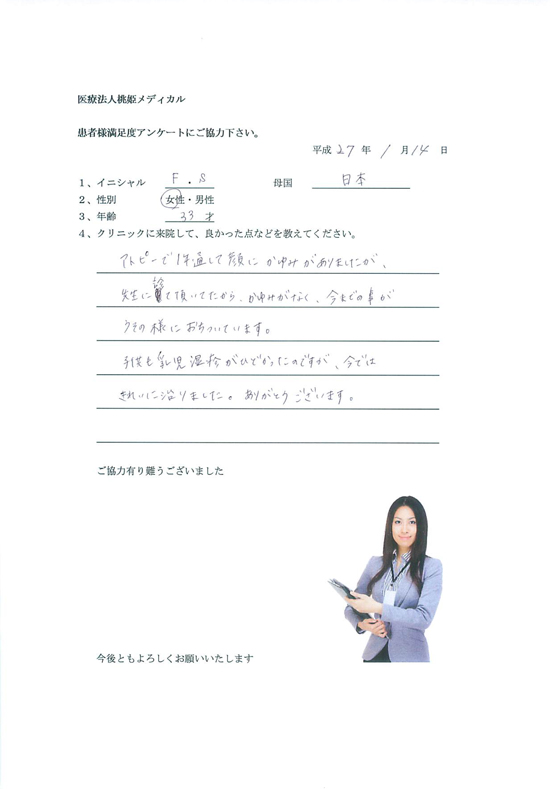 医療法人桃姫メディカル
患者様満足度アンケートにご協力下さい。
平成 27 年 1 月 14 日
1、イニシャル F . S 母国 日本
2、性別 女性・男性
3、年齢 33 才
4、クリニックに来院して、良かった点などを教えてください。
アトピーで1年通して顔にかゆみがありましたが、
先生に診て頂いてたから、かゆみがなく、今までの事が
うその様におちついています。
子供も乳児湿疹がひどかったのですが、今では
きれいに治りました。ありがとうございます。
ご協力有り難うございました
今後ともよろしくお願いいたします